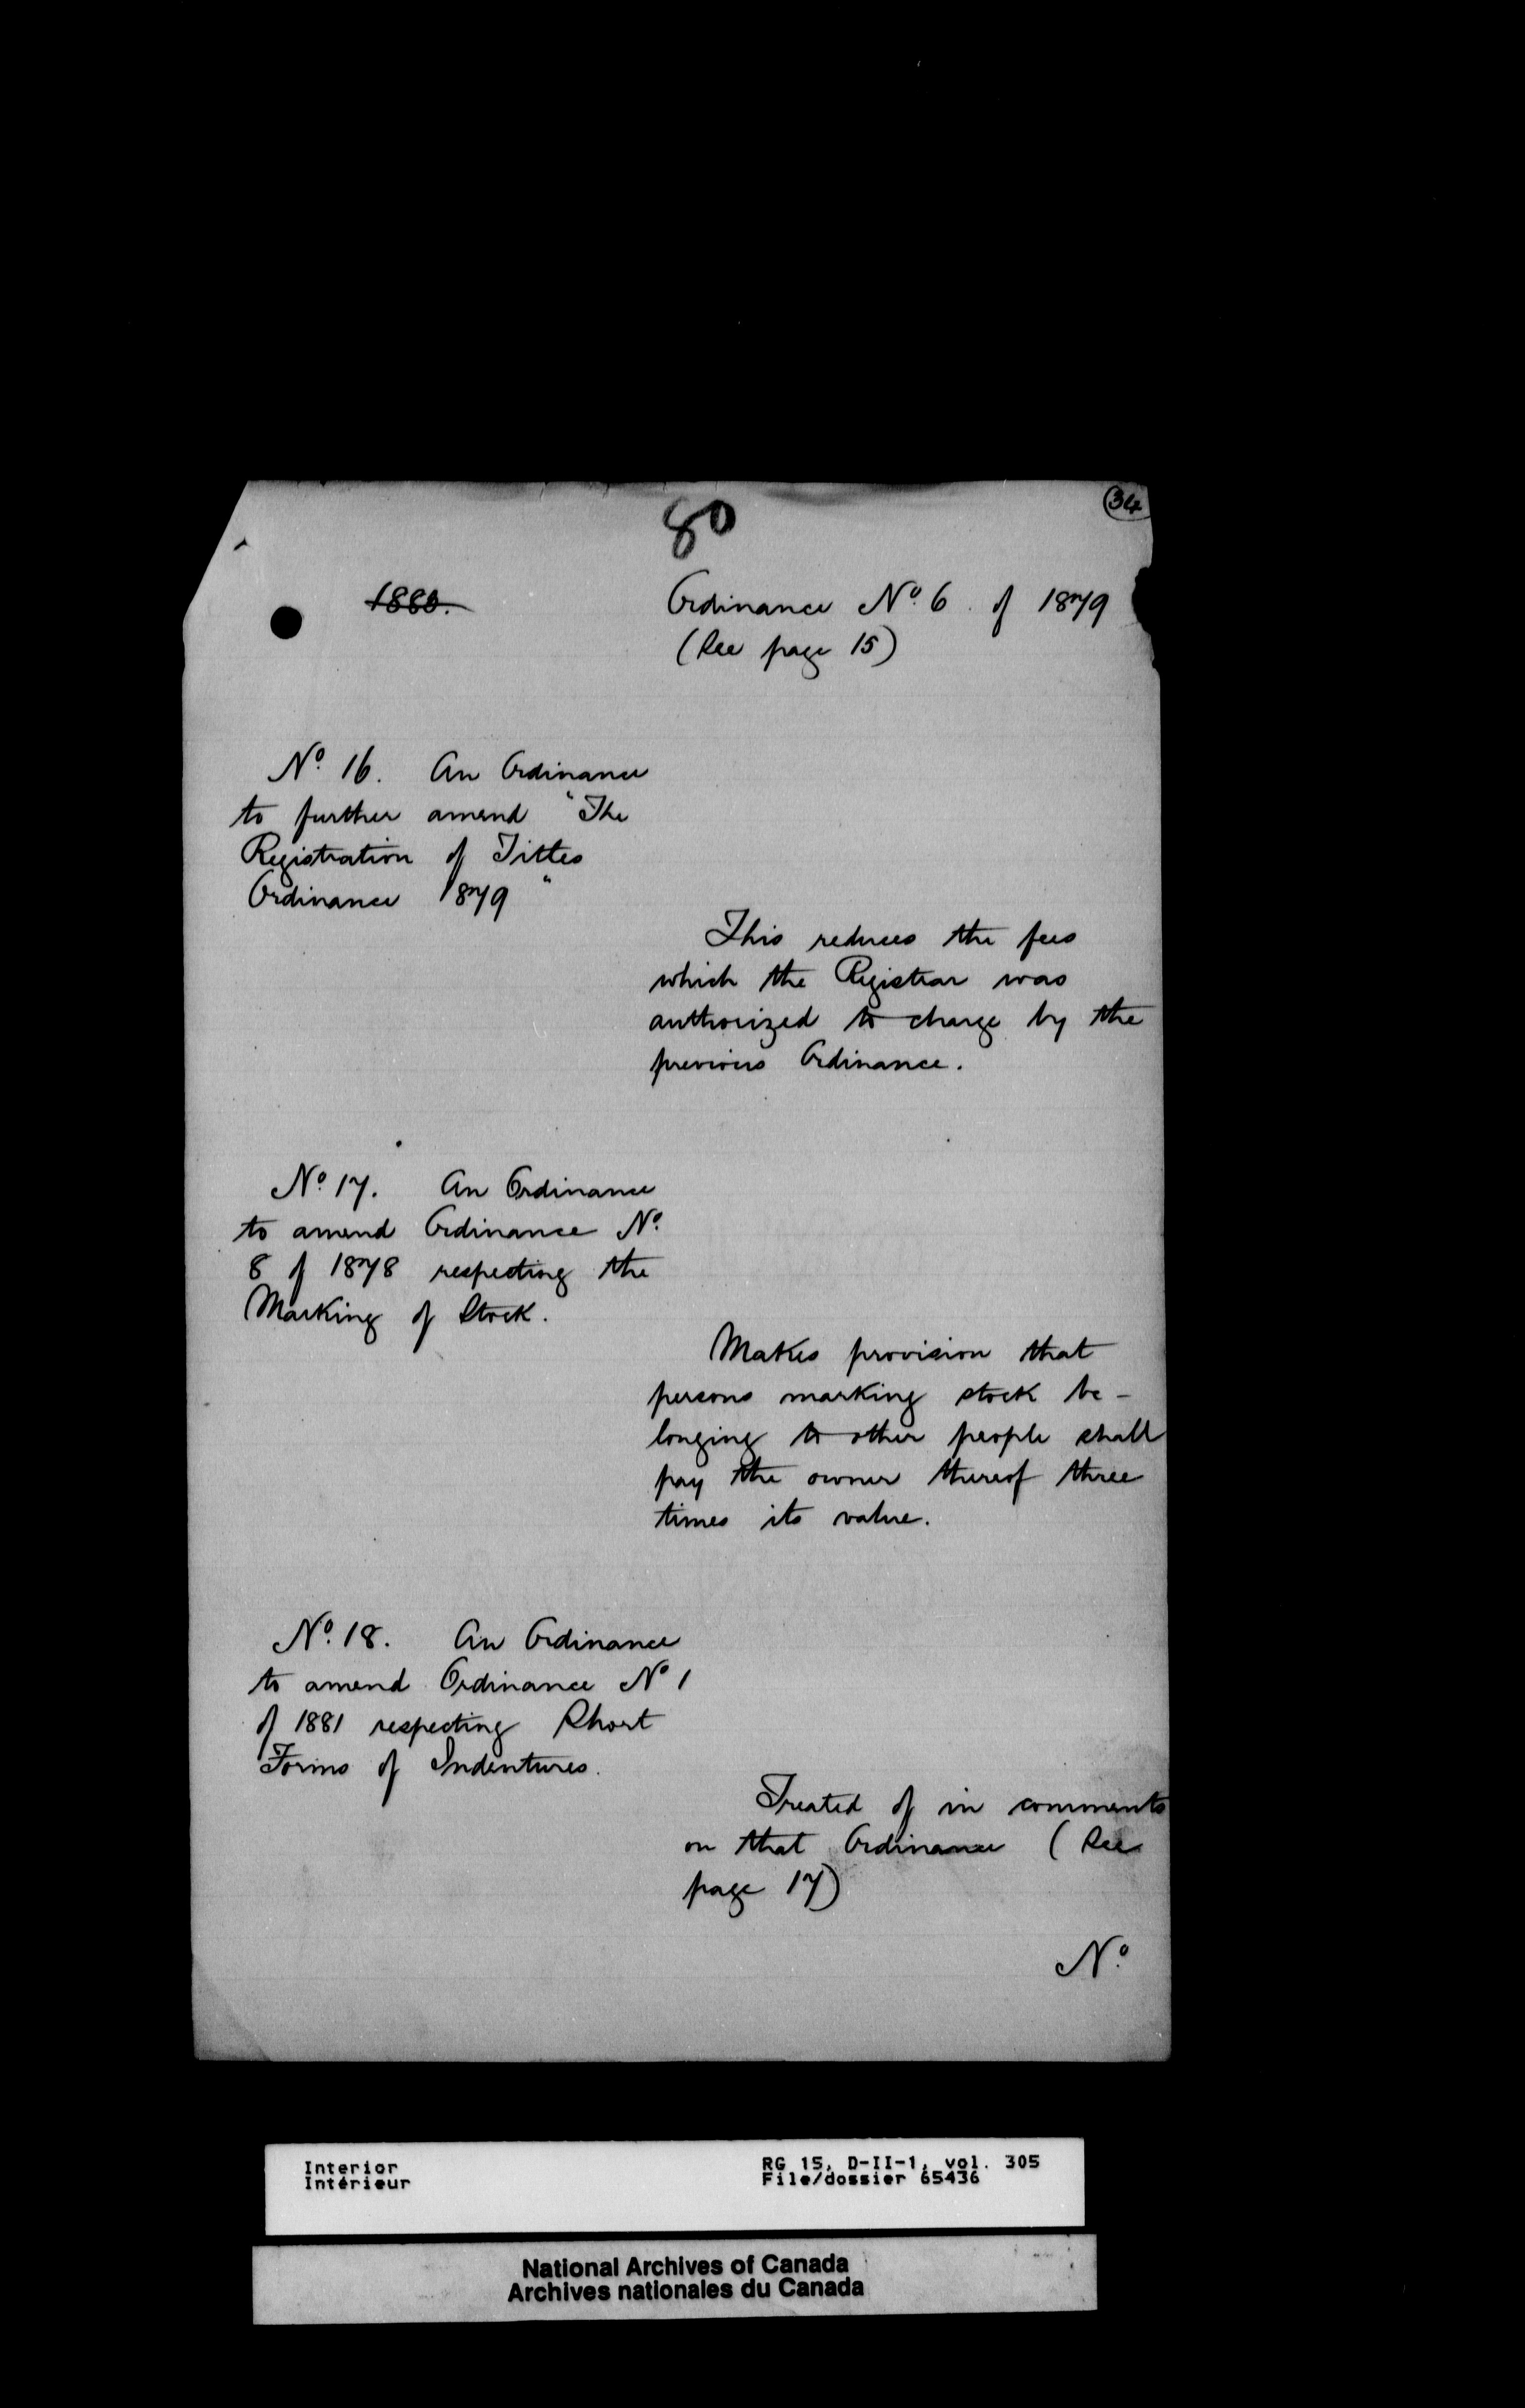 80
34
1880.
Ordinance No. 6 of 1879
(See page 15)
No. 16. An Ordinance
to further amend "The
Registration of Titles
Ordinance 1879"
This reduces the fees
which the Registrar was
authorized to charge by the
previous Ordinance.
No. 17. An Ordinance
to amend Ordinance No.
8 of 1878 respecting the
Marking of Stock.
Makes provision that
persons marking stock be-
longing to other people shall
pay the owner thereof three
times its value.
No. 18. An Ordinance
to amend Ordinance No 1
of 1881 respecting Short
Forms of Indentures.
Treated of in comments
on that Ordinance (See
page 17)
No.
Interior
Intérieur
RG 15, D-II-1, vol. 305
File/dossier 65436
National Archives of Canada
Archives nationales du Canada